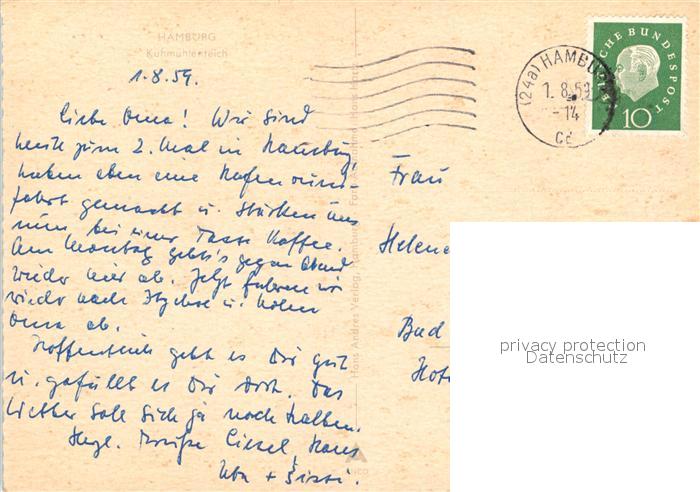 HAMBURG
Kuhmühlenteich
1.8.59.
Liebe Oma! Wir sind
heute zum 2. Mal in Hamburg,
haben eben eine Hafenrund-
fahrt gemacht u. stärken uns
nun bei einer Tasse Kaffee.
Am Montag geht's gegen Abend
wieder hier ab. Jetzt fahren wir
wieder nach u. holen
Oma ab.
Hoffentlich geht es Dir gut
u. gefällt es Dir dort. Das
Wetter soll sich ja noch halten.
Hzgl. Grüße Liesel, Hans
Uta +
Hans Andres Verlag, Hamburg
(24a) HAMBURG
1. 8. 59
- 14
Cd
DEUTSCHE BUNDESPOST
10
Frau
Helene
Bad
privacy protection
Datenschutz